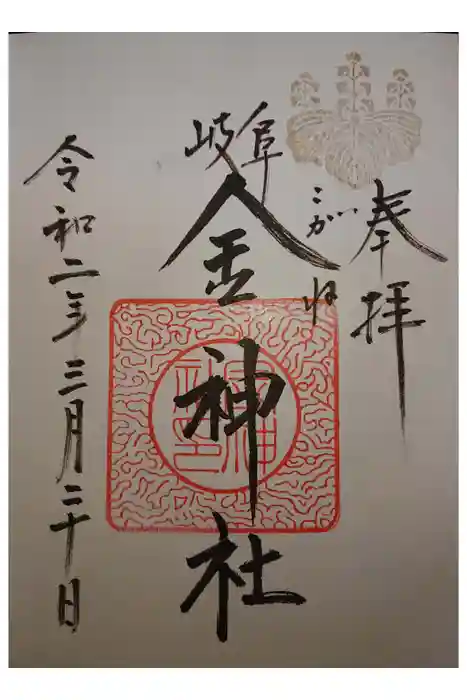 奉拝
こがね
岐阜
金神社
令和二年三月二十日